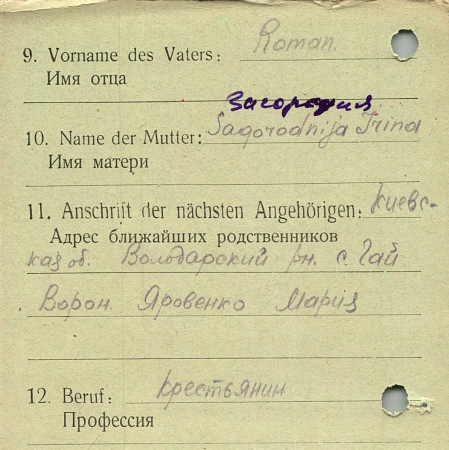 9. Vorname des Vaters: Roman.
Имя отца
Загородния
10. Name der Mutter: Sagorodnija Irina
Имя матери
11. Anschrift der nächsten Angehörigen: Киевс-
Адрес ближайших родственников
кая об. Володарский рн. с. Гай
Ворон. Яровенко Мария
12. Beruf: Крестьянин
Профессия